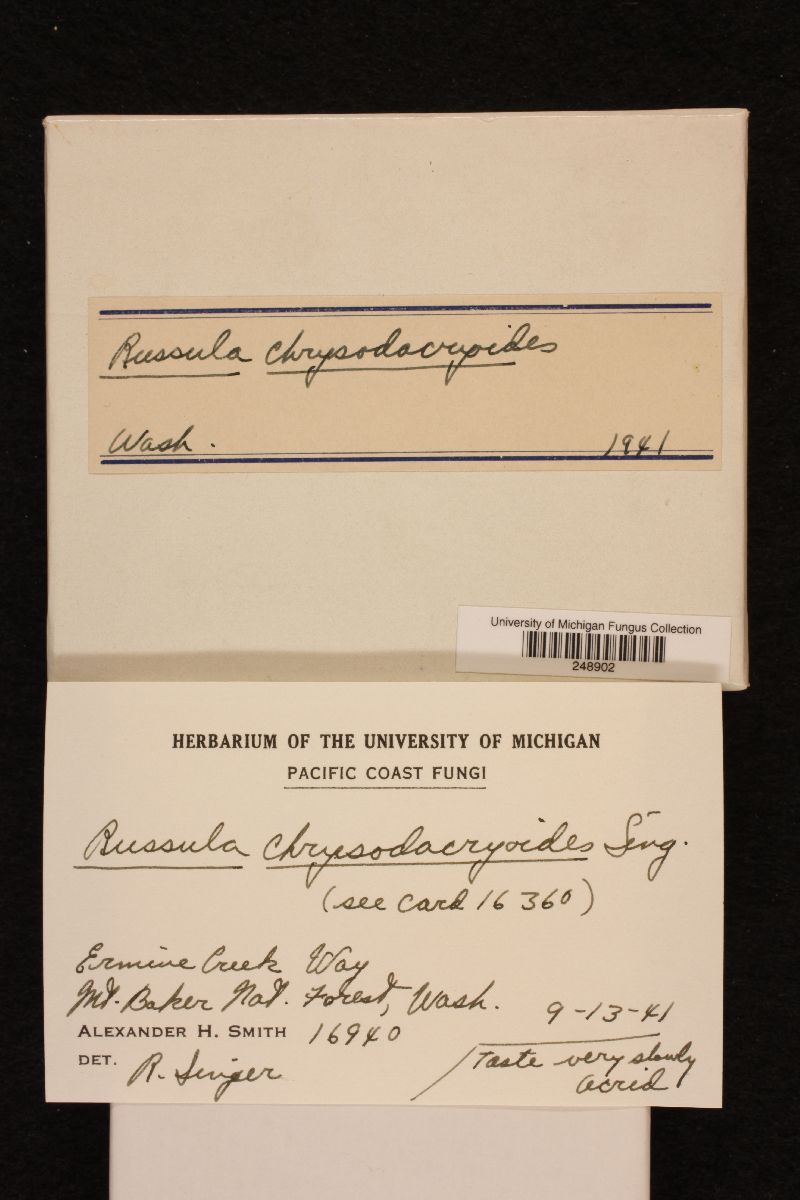 Russula chrysodacryoides
Wash. 1941
University of Michigan Fungus Collection
248902
HERBARIUM OF THE UNIVERSITY OF MICHIGAN
PACIFIC COAST FUNGI
Russula chrysodacryoides Sing.
(see card 16360)
Ermine Creek Way
Mt. Baker Nat. Forest, Wash. 9-13-41
ALEXANDER H. SMITH 16940
DET. R. Singer
Taste very slowly
acrid